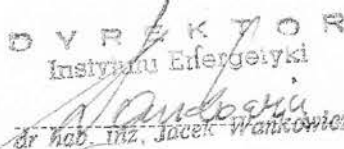 DYREKTOR
Instytutu Energetyki
dr hab. inż. Jacek Wańkowicz